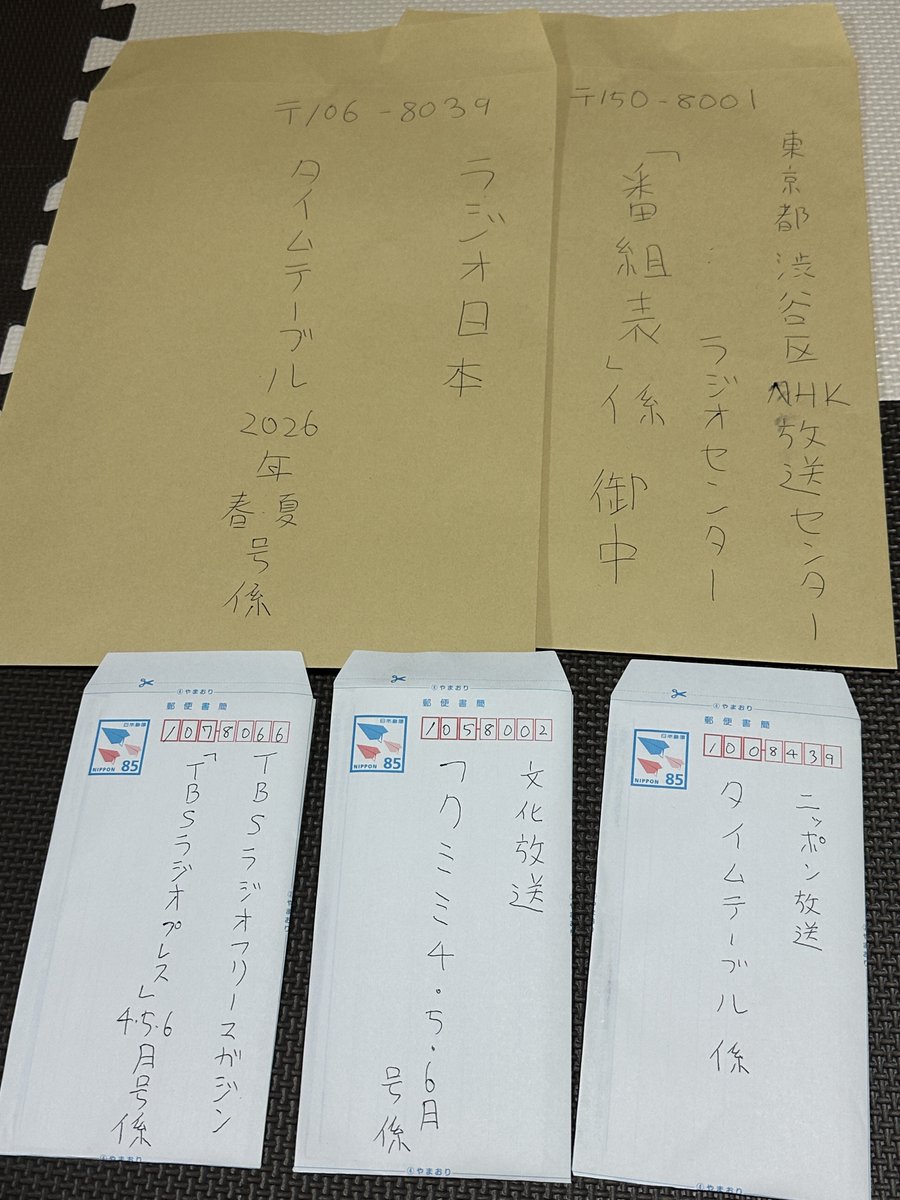 〒106-8039
ラジオ日本
タイムテーブル
2026
年
春・夏
号
係
〒150-8001
東京都渋谷区NHK放送センター
ラジオセンター
「番組表」係 御中
④やまおり
郵便書簡
日本郵便
NIPPON 85
1078066
TBSラジオフリーマガジン
「TBSラジオプレス」
4・5・6
月号係
④やまおり
④やまおり
郵便書簡
日本郵便
NIPPON 85
1058002
文化放送
フクミミ4・5・6月
号係
④やまおり
④やまおり
郵便書簡
日本郵便
NIPPON 85
1008439
ニッポン放送
タイムテーブル係
④やまおり